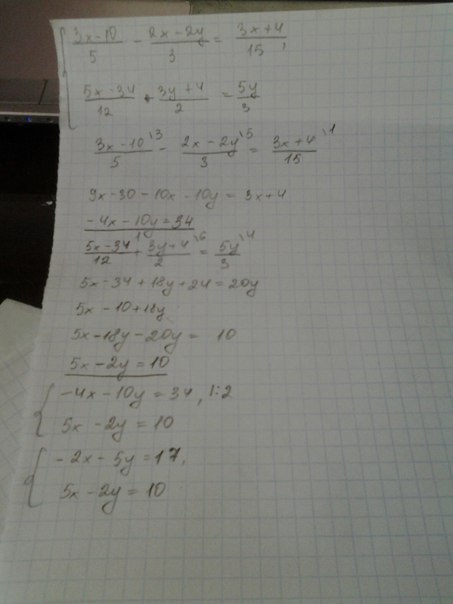 { (3x-10)/5 - (2x-2y)/3 = (3x+4)/15,
(5x-34)/12 + (3y+4)/2 = 5y/3
(3x-10)/5 \3 - (2x-2y)/3 \5 = (3x+4)/15 \1
9x-30-10x-10y = 3x+4
-4x-10y=34
(5x-34)/12 \1 + (3y+4)/2 \6 = 5y/3 \4
5x-34+18y+24=20y
5x-10+18y
5x-18y-20y = 10
5x-2y=10
{ -4x-10y=34, |:2
5x-2y=10
{ -2x-5y=17,
5x-2y=10